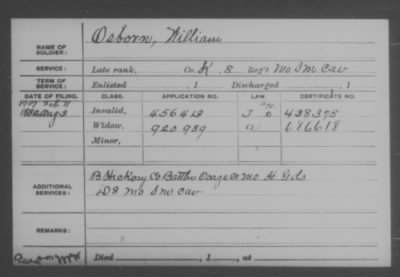 NAME OF SOLDIER: Osborn, William
SERVICE: Late rank, Co. K, 8 Reg't Mo S M Cav
TERM OF SERVICE: Enlisted , 1 Discharged , 1
DATE OF FILING. CLASS. APPLICATION NO. LAW. CERTIFICATE NO.
Invalid, 456413 J 438375
Widow, 920989 686618
Minor,
ADDITIONAL SERVICES: B Hickory Co Battln Osage Co Mo H Gds
D 8 Mo S M Cav
REMARKS:
Died , 1 , at